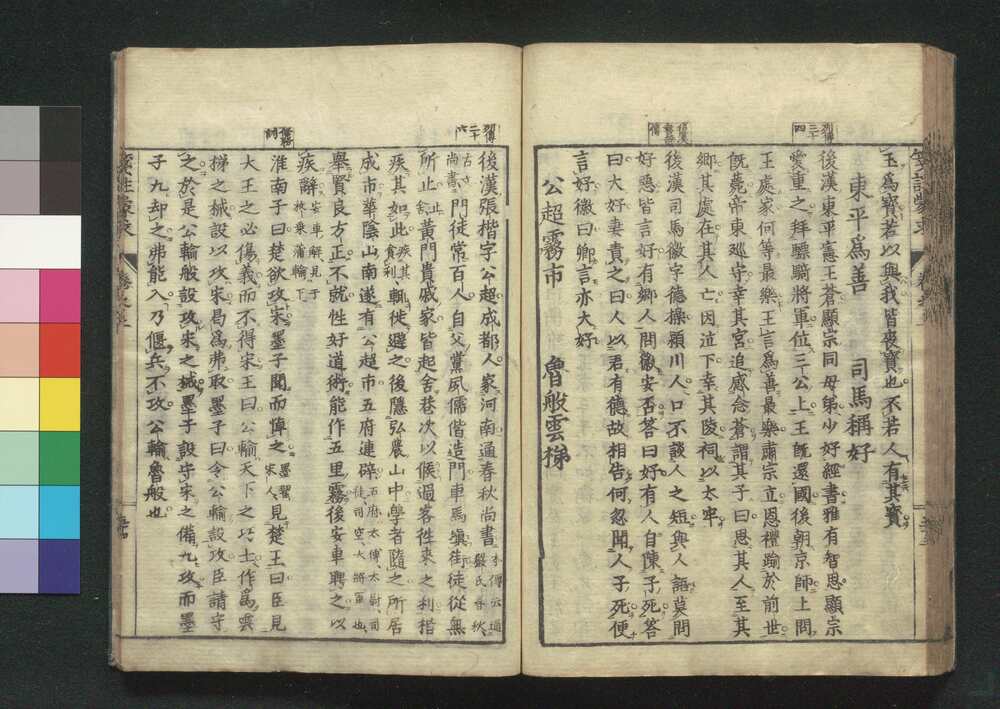 玉爲寶若以與我皆喪寶也不若人有其寶
東平爲善　司馬稱好
列傳三十四
後漢東平憲王蒼顯宗同母弟少好經書雅有智思顯宗
愛重之拜驃騎將軍位三公上王既還國後朝京師上問
王處家何等最樂王言爲善最樂肅宗立恩禮踰於前世
既薨帝東巡守幸其宮追感念蒼謂其子曰思其人至其
鄉其處在其人亡因泣下幸其陵祠以太牢
後漢司馬徽字德操潁川人口不談人之短與人語莫問
好惡皆言好有鄉人問徽安否答曰好有人自陳子死答
曰大好妻責之曰人以君有德故相告何忽聞人子死便
言好徽曰卿言亦大好
公超霧市　魯般雲梯
列傳二十六
後漢張楷字公超成都人家河南通春秋尚書本傳云通嚴氏春秋
古文尚書門徒常百人自父黨夙儒偕造門車馬塡街徒從無
所止止舍黃門貴戚家皆起舍巷次以候過客往來之利楷
疾其如此疾其貪利輒徙避之後隱弘農山中學者隨之所居
成市華陰山南遂有公超市五府連辟五府太傅太尉司徒司空大將軍也
舉賢良方正不就性好道術能作五里霧後安車聘之以
疾辭安車解見于枚乘蒲輪下
淮南子曰楚欲攻宋墨子聞而悼之墨翟宋人見楚王曰臣見
大王之必傷義而不得宋王曰公輸天下之巧士作爲雲
梯之械設以攻宋曷爲弗取墨子曰令公輸設攻臣請守
之於是公輸般設攻宋之械墨子設守宋之備九攻而墨
子九却之弗能入乃偃兵不攻公輸魯般也